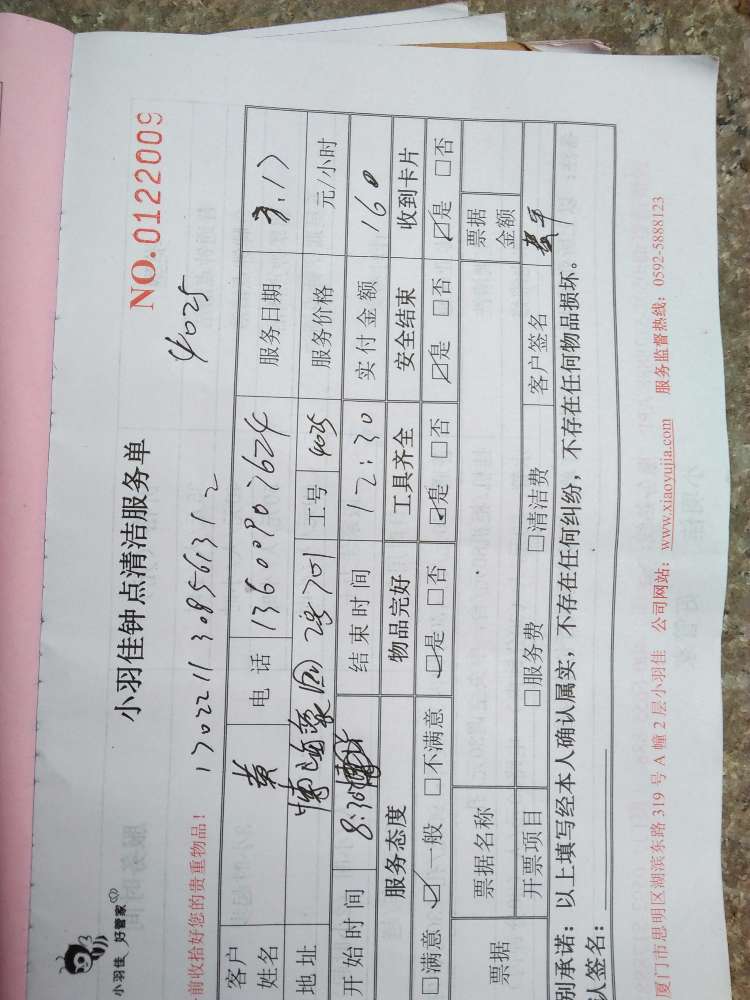 小羽佳 好管家
小羽佳钟点清洁服务单
NO.0122009
前收拾好您的贵重物品！ 1702211308561312 4025
客户姓名 黄 电话 13600907624 服务日期 3.17
地址 2号701 工号 4025 服务价格 元/小时
开始时间 8:30 结束时间 12:30 实付金额 160
服务态度 物品完好 工具齐全 安全结束 收到卡片
□满意 ☑一般 □不满意 ☑是 □否 ☑是 □否 ☑是 □否 ☑是 □否
票据 票据名称 票据金额
开票项目 □服务费 □清洁费 客户签名
别承诺：以上填写经本人确认属实，不存在任何纠纷，不存在任何物品损坏。
人签名：
厦门市思明区湖滨东路 319 号 A 幢 2 层小羽佳 公司网站：www.xiaoyujia.com 服务监督热线：0592-5888123